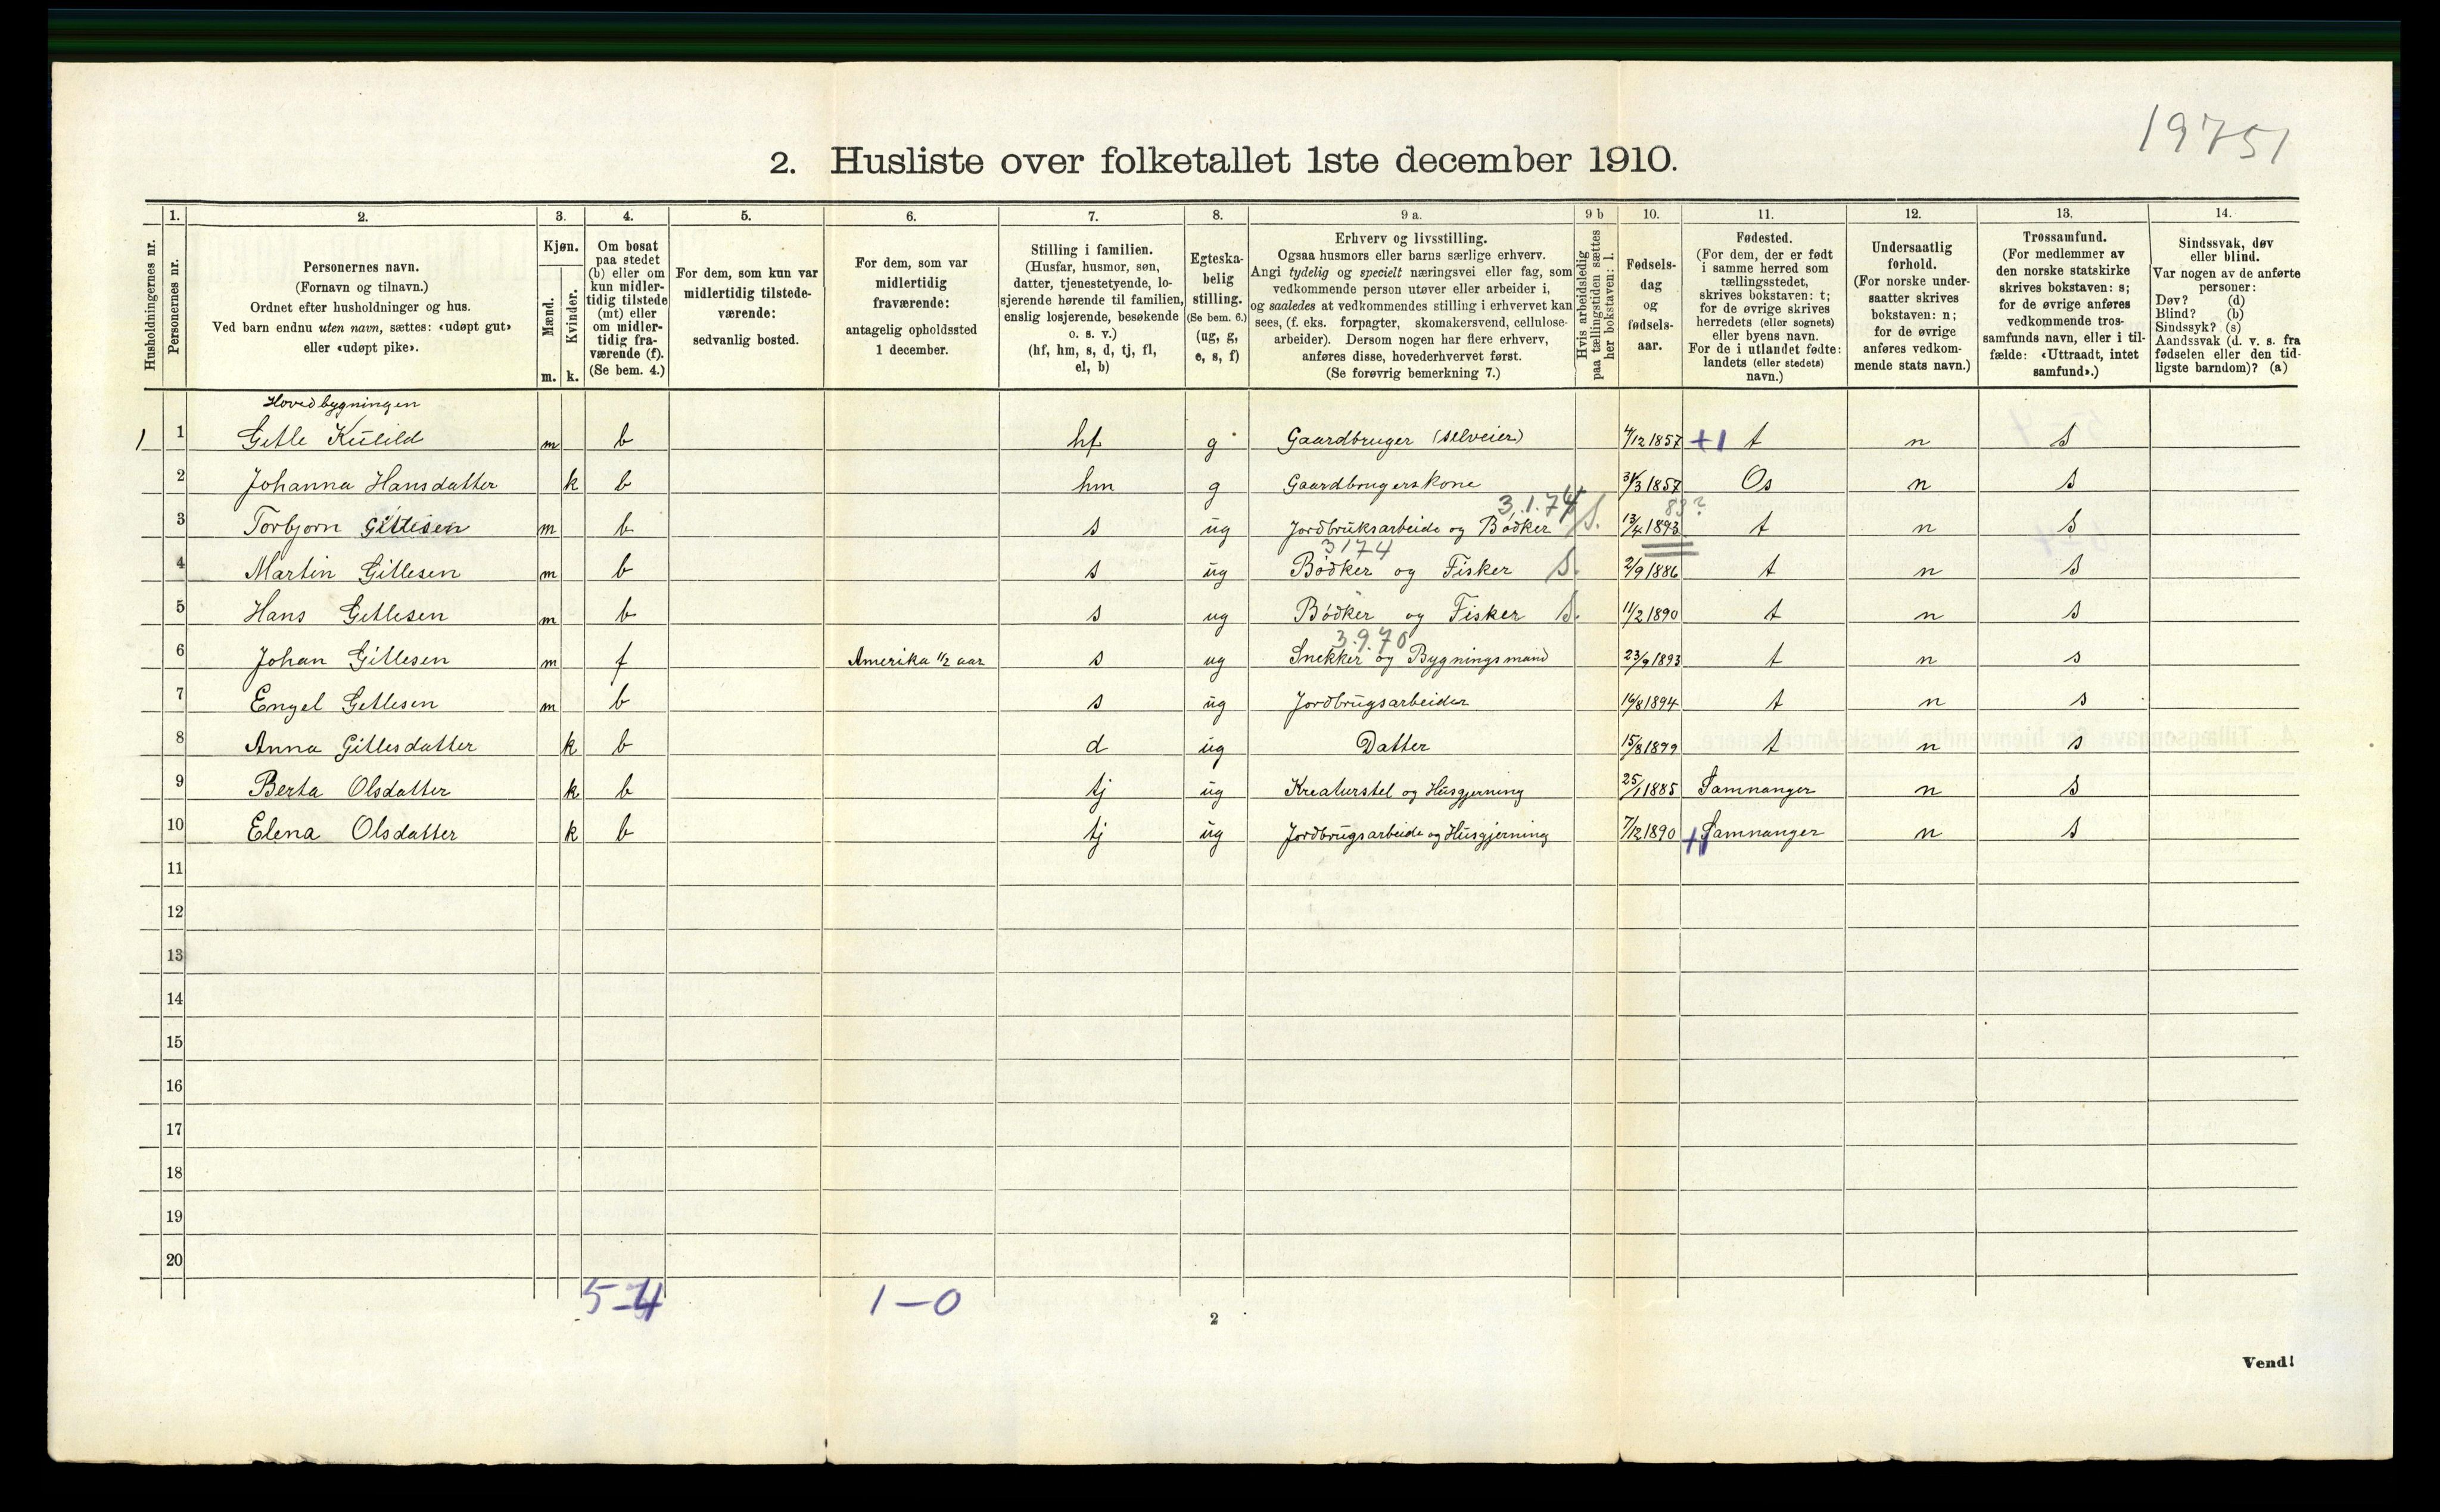 19751
2. Husliste over folketallet 1ste december 1910.
1. 2. 3. 4. 5. 6. 7. 8. 9 a. 9 b 10. 11. 12. 13. 14.
Husholdningernes nr.
Personernes nr.
Personernes navn.
(Fornavn og tilnavn.)
Ordnet efter husholdninger og hus.
Ved barn endnu uten navn, sættes: «udøpt gut»
eller «udøpt pike».
Kjøn.
Mænd.
Kvinder.
m. k.
Om bosat
paa stedet
(b) eller om
kun midler-
tidig tilstede
(mt) eller
om midler-
tidig fra-
værende (f).
(Se bem. 4.)
For dem, som kun var
midlertidig tilstede-
værende:
sedvanlig bosted.
For dem, som var
midlertidig
fraværende:
antagelig opholdssted
1 december.
Stilling i familien.
(Husfar, husmor, søn,
datter, tjenestetyende, lo-
sjerende hørende til familien,
enslig losjerende, besøkende
o. s. v.)
(hf, hm, s, d, tj, fl,
el, b)
Egteska-
belig
stilling.
(Se bem. 6.)
(ug, g,
e, s, f)
Erhverv og livsstilling.
Ogsaa husmors eller barns særlige erhverv.
Angi tydelig og specielt næringsvei eller fag, som
vedkommende person utøver eller arbeider i,
og saaledes at vedkommendes stilling i erhvervet kan
sees, (f. eks. forpagter, skomakersvend, cellulose-
arbeider). Dersom nogen har flere erhverv,
anføres disse, hovederhvervet først.
(Se forøvrig bemerkning 7.)
Hvis arbeidsledig
paa tællingstiden sættes
her bokstaven: l.
Fødsels-
dag
og
fødsels-
aar.
Fødested.
(For dem, der er født
i samme herred som
tællingsstedet,
skrives bokstaven: t;
for de øvrige skrives
herredets (eller sognets)
eller byens navn.
For de i utlandet fødte:
landets (eller stedets)
navn.)
Undersaatlig
forhold.
(For norske under-
saatter skrives
bokstaven: n;
for de øvrige
anføres vedkom-
mende stats navn.)
Trossamfund.
(For medlemmer av
den norske statskirke
skrives bokstaven: s;
for de øvrige anføres
vedkommende tros-
samfunds navn, eller i til-
fælde: «Uttraadt, intet
samfund».)
Sindssvak, døv
eller blind.
Var nogen av de anførte
personer:
Døv? (d)
Blind? (b)
Sindssyk? (s)
Aandssvak (d. v. s. fra
fødselen eller den tid-
ligste barndom)? (a)
Hovedbygningen
1 1 Gitle Kulild m b hf g Gaardbruger (selveier) 4/12 1857 +1 t n s
2 Johanna Hansdatter k b hm g Gaardbrugerskone 31/3 1857 Os n s
3.1.74 83?
3 Torbjørn Gitlesen m b s ug Jordbruksarbeide og Bødker S. 13/4 1893 t n s
3174
4 Martin Gitlesen m b s ug Bødker og Fisker S. 2/9 1886 t n s
5 Hans Gitlesen m b s ug Bødker og Fisker S. 11/2 1890 t n s
3.9.70
6 Johan Gitlesen m f Amerika 1 1/2 aar s ug Snekker og Bygningsmand 23/9 1893 t n s
7 Engel Gitlesen m b s ug Jordbrugsarbeider 16/8 1894 t n s
8 Anna Gitlesdatter k b d ug Datter 15/8 1899 t n s
9 Berta Olsdatter k b tj ug Kreaturstel og Husgjerning 25/1 1885 Samnanger n s
10 Elena Olsdatter k b tj ug Jordbrugsarbeide og Husgjerning 7/12 1890 + Samnanger n s
11
12
13
14
15
16
17
18
19
20
5-4 1-0
2
Vend!